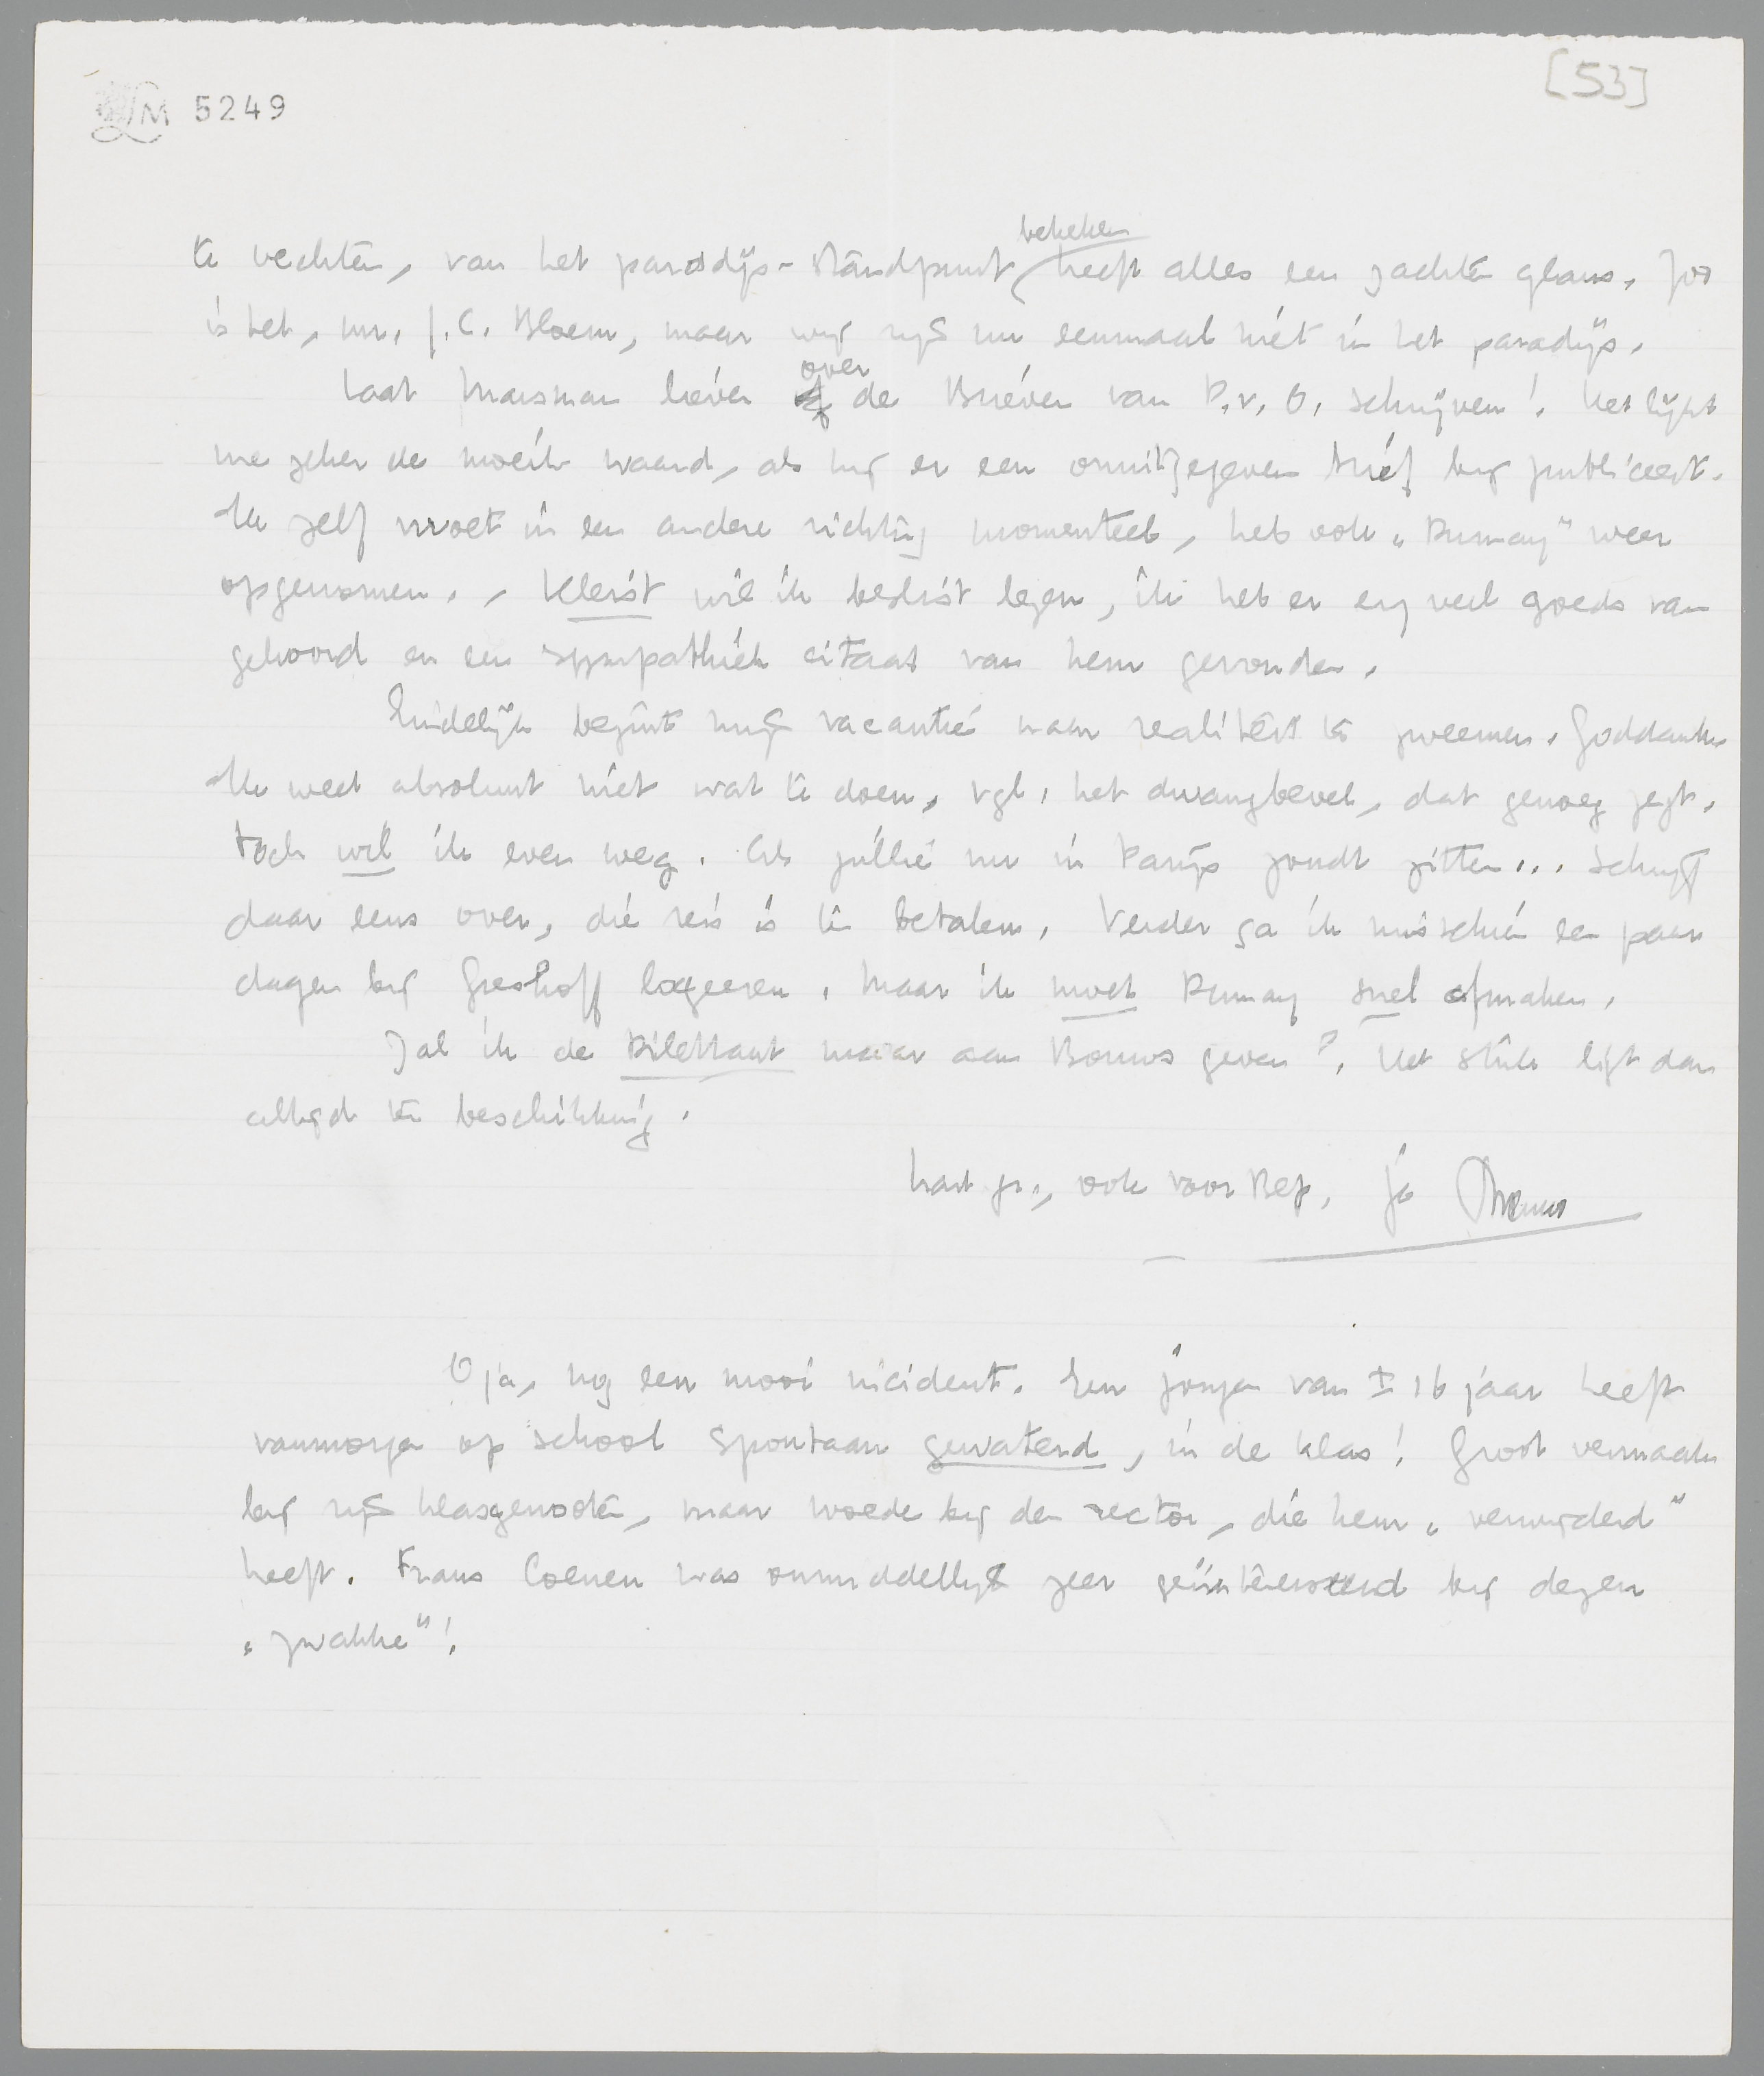 LM 5249
[53]
bekeken
te vechten, van het paradijs-standpunt heeft alles een zachten glans. Zoo
is het, mr. J.C. Bloem, maar wij zijn nu eenmaal niet in het paradijs.
over
Laat Marsman liever de Brieven van P.v.O. schrijven! Het lijkt
me zeker de moeite waard, als hij er een onuitgegeven brief bij publiceert.
Ik zelf moet in een andere richting momenteel, heb ook „Dumay" weer
opgenomen. , Kleist wil ik beslist lezen, ik heb er erg veel goeds van
gehoord en een sympathiek citaat van hem gevonden.
Eindelijk begint mijn vacantie naar realiteit te zweemen. Goddank
Ik weet absoluut niet wat te doen, vgl. het dwangbevel, dat genoeg zegt.
toch wil ik even weg. Als jullie nu in Parijs zoudt zitten... Schrijf
daar eens over, die reis is te betalen. Verder ga ik misschien een paar
dagen bij Greshoff logeeren. Maar ik moet Dumay snel afmaken.
Zal ik de Dilettant maar aan Bouws geven?. Het stuk ligt dan
altijd ter beschikking.
hart. gr., ook voor Bep, je Menno
O ja, nog een mooi incident. Een jongen van ± 16 jaar heeft
vanmorgen op school spontaan gewaterd, in de klas! Groot vermaak
bij zijn klasgenooten, maar woede bij den rector, die hem „verwijderd"
heeft. Frans Coenen was onmiddellijk zeer geïnteresseerd bij dezen
„zwakke"!